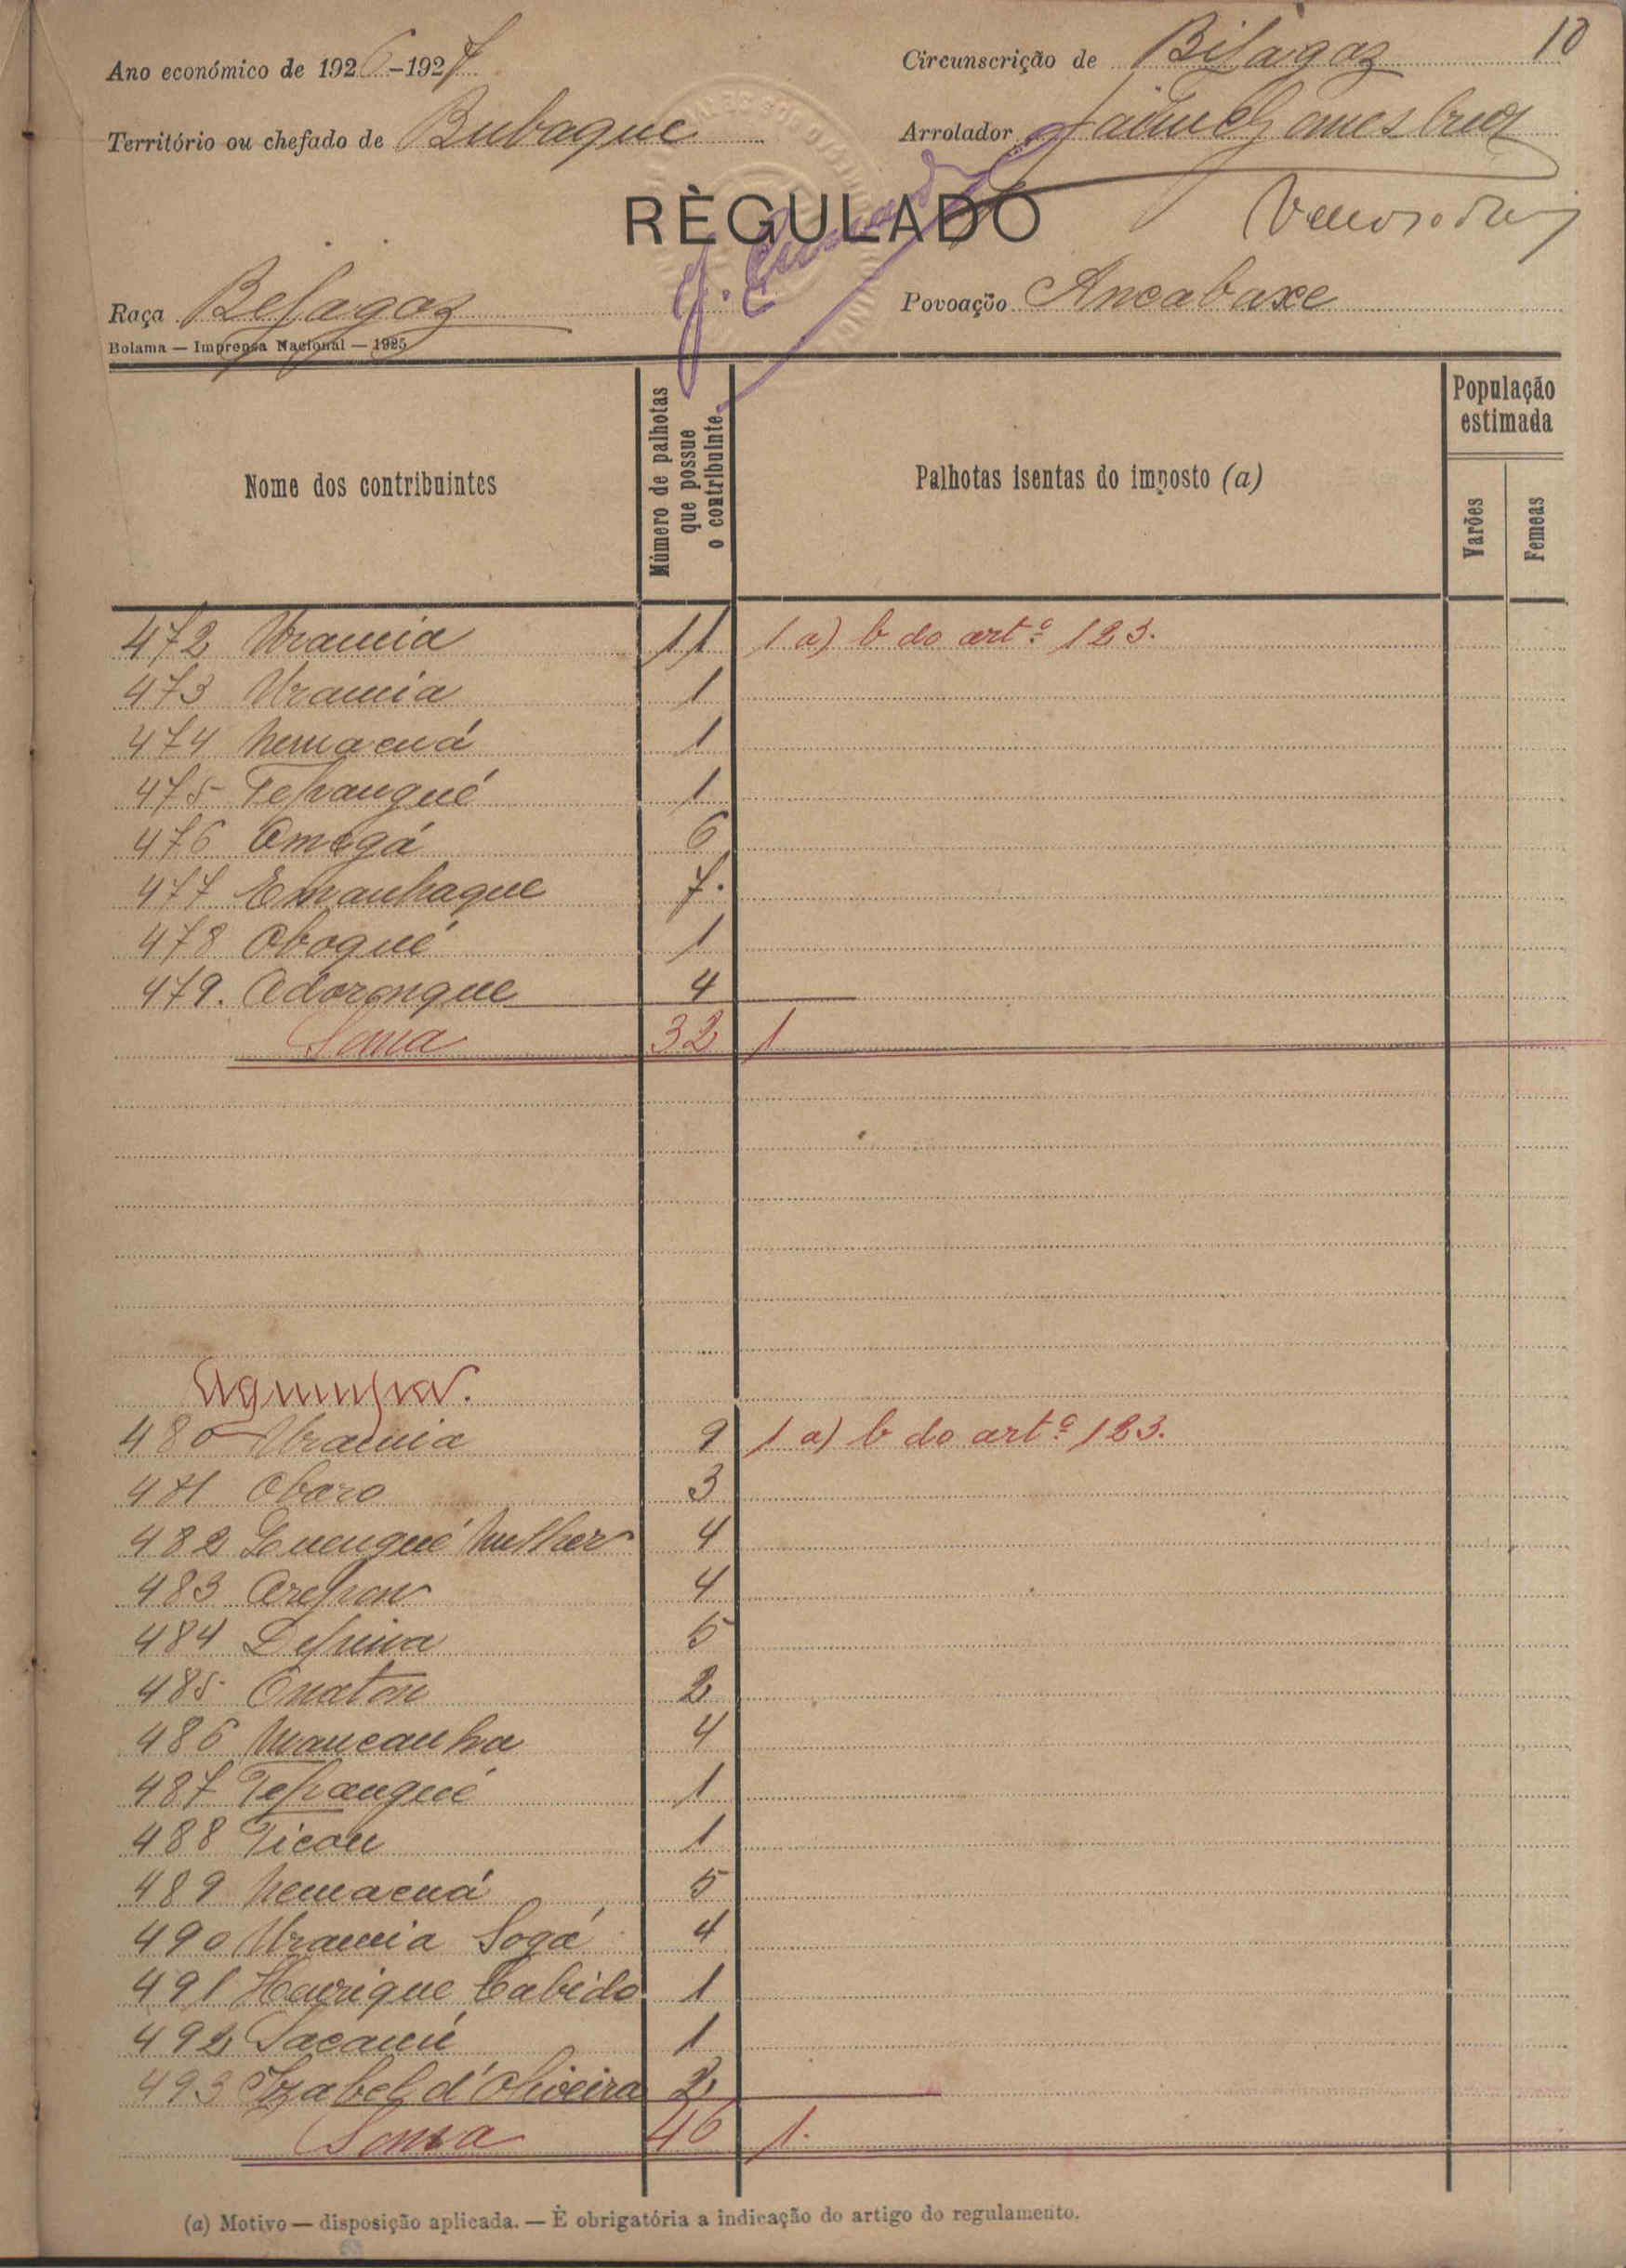 10
Ano económico de 1926-1927
Circunscrição de Bijagoz
Território ou chefado de Bubaque
Arrolador Jaime Gomes Cruz
RÈGULADO
Raça Bejagoz
Povoação Ancabaxe
Bolama — Imprensa Nacional — 1925
Nome dos contribuintes
Múmero de palhotas que possue o contribuinte
Palhotas isentas do imposto (a)
População estimada
Varões
Femeas
472 Uramia 11 1 a) b do artº 123.
473 Uramia 1
474 Nemacuá 1
475 Tepangué 1
476 Omogá 6
477 Emanhaque 7.
478 Oboqué 1
479. Adoronque 4
Soma 32 1
480 Uramia 9 1 a) b do artº 123.
481 Obaro 3
482 Quengué Mulher 4
483 4
484 5
485 Onaton 2
486 Mancanha 4
487 Tepangué 1
488 Ticou 1
489 Nemacuá 5
490 Uramia Sogá 4
491 Henrique Cabido 1
492 1
493 Izabel d'Oliveira 2
Soma 46 1.
(a) Motivo — disposição aplicada. — È obrigatória a indicação do artigo do regulamento.